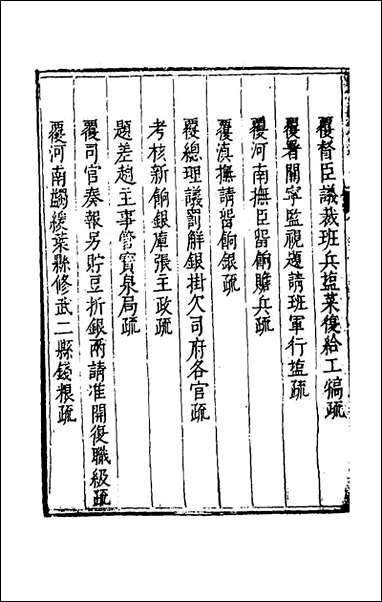 覆督臣議裁班兵塩菜復給工犒疏
覆署關寧監視題請班軍行塩疏
覆河南撫臣留餉贍兵疏
覆滇撫請留餉銀疏
覆總理議罰解銀掛欠司府各官疏
考核新餉銀庫張主政疏
題差趙主事管寳泉局疏
覆司官奏報另貯豆折銀兩請准開復職級疏
覆河南蠲緩葉縣修武二縣錢粮疏